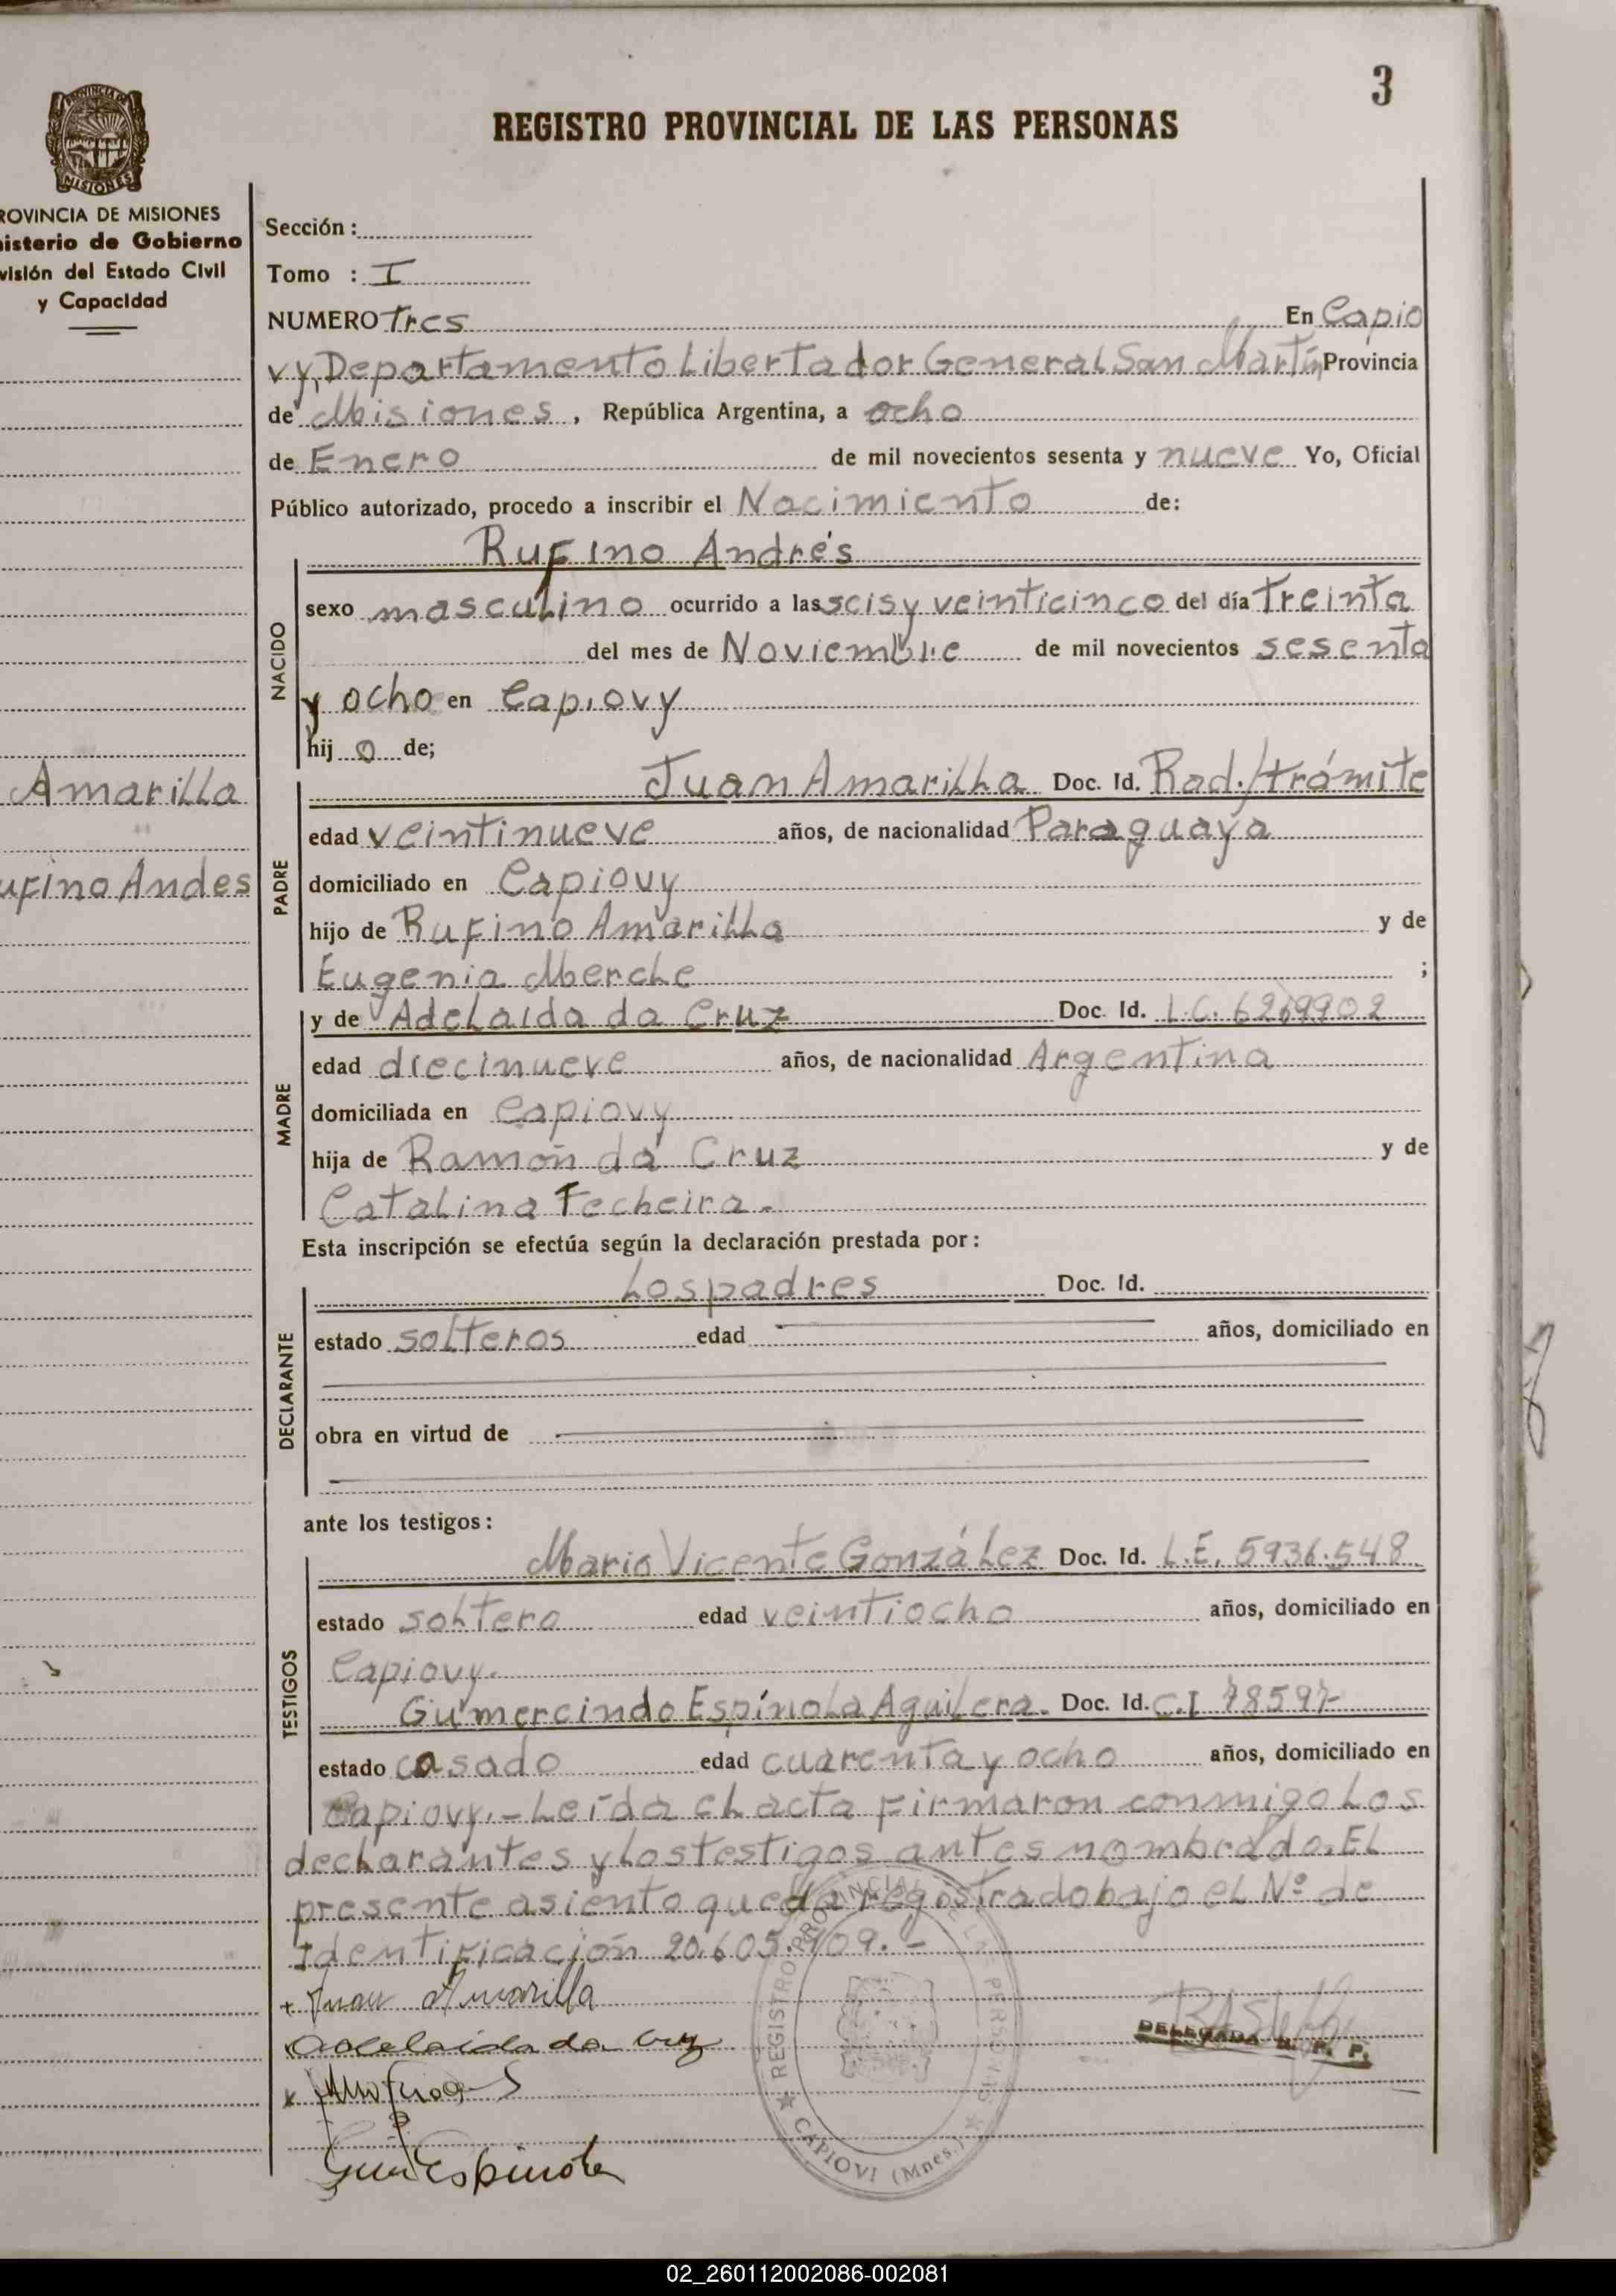 3
REGISTRO PROVINCIAL DE LAS PERSONAS
PROVINCIA DE
MISIONES
ROVINCIA DE MISIONES
nisterio de Gobierno
visión del Estado Civil
y Capacidad
Amarilla
ufino Andes
Sección :
Tomo : I
NUMERO Tres En Capio
vy, Departamento Libertador General San Martín, Provincia
de Misiones, República Argentina, a ocho
de Enero de mil novecientos sesenta y nueve Yo, Oficial
Público autorizado, procedo a inscribir el Nacimiento de:
Rufino Andrés
NACIDO
sexo masculino ocurrido a las seis y veinticinco del día Treinta
del mes de Noviembre de mil novecientos sesenta
y ocho en Capiovy
hij o de;
PADRE
Juan Amarilla Doc. Id. Rad./trámite
edad veintinueve años, de nacionalidad Paraguaya
domiciliado en Capiovy
hijo de Rufino Amarilla y de
Eugenia Merele ;
MADRE
y de Adelaida da Cruz Doc. Id. L.C. 6269902
edad diecinueve años, de nacionalidad Argentina
domiciliada en Capiovy
hija de Ramón da Cruz y de
Catalina Fecheira.
Esta inscripción se efectúa según la declaración prestada por:
DECLARANTE
Los padres Doc. Id.
estado solteros edad años, domiciliado en
obra en virtud de
ante los testigos:
TESTIGOS
Mario Vicente González Doc. Id. L.E. 5936.548
estado soltero edad veintiocho años, domiciliado en
Capiovy.
Gumercindo Espínola Aguilera. Doc. Id. C.I 78597-
estado casado edad cuarenta y ocho años, domiciliado en
Capiovy.- Leída el acta firmaron conmigo los
declarantes y los testigos antes nombrado. El
presente asiento queda registrado bajo el Nº de
Identificación 20.605.909.-
Juan Amarilla
Adelaida da Cruz
Gum Espinola
REGISTRO PROVINCIAL DE LAS PERSONAS
CAPIOVI (Mnes.)
DELEGADA R. P. P.
02_260112002086-002081